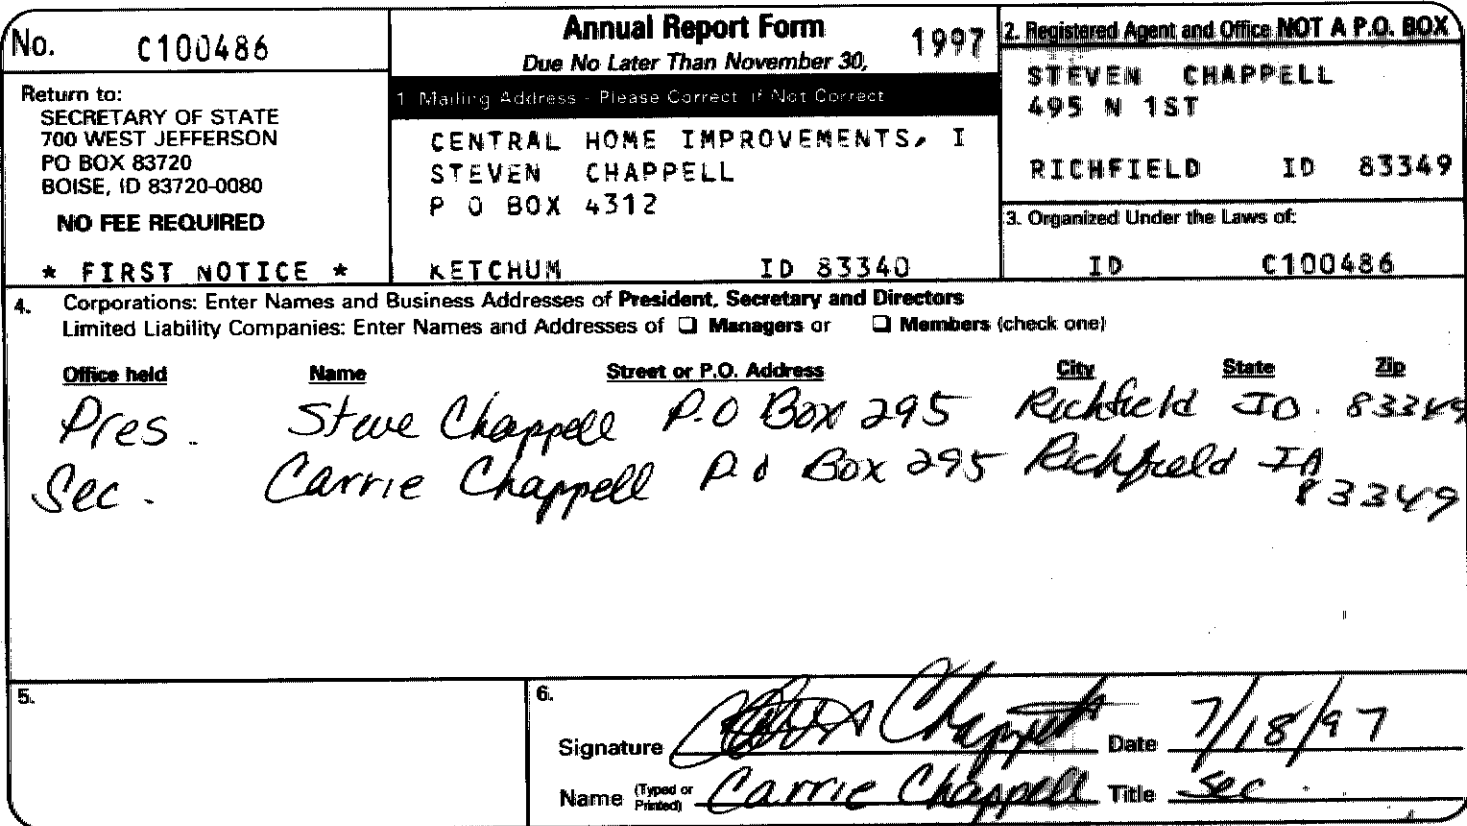 No. C100486
Return to:
SECRETARY OF STATE
700 WEST JEFFERSON
PO BOX 83720
BOISE, ID 83720-0080
NO FEE REQUIRED
* FIRST NOTICE *
Annual Report Form 1997
Due No Later Than November 30,
1 Mailing Address - Please Correct if Not Correct
CENTRAL HOME IMPROVEMENTS, I
STEVEN CHAPPELL
P O BOX 4312
KETCHUM ID 83340
2. Registered Agent and Office NOT A P.O. BOX
STEVEN CHAPPELL
495 N 1ST
RICHFIELD ID 83349
3. Organized Under the Laws of:
ID C100486
4. Corporations: Enter Names and Business Addresses of President, Secretary and Directors
Limited Liability Companies: Enter Names and Addresses of ❑ Managers or ❑ Members (check one)
Office held Name Street or P.O. Address City State Zip
Pres. Steve Chappell P.O Box 295 Richfield ID. 83349
Sec. Carrie Chappell P.O Box 295 Richfield ID
83349
5.
6.
Signature Chappell Date 7/18/97
Name (Typed or Printed) Carrie Chappell Title Sec.